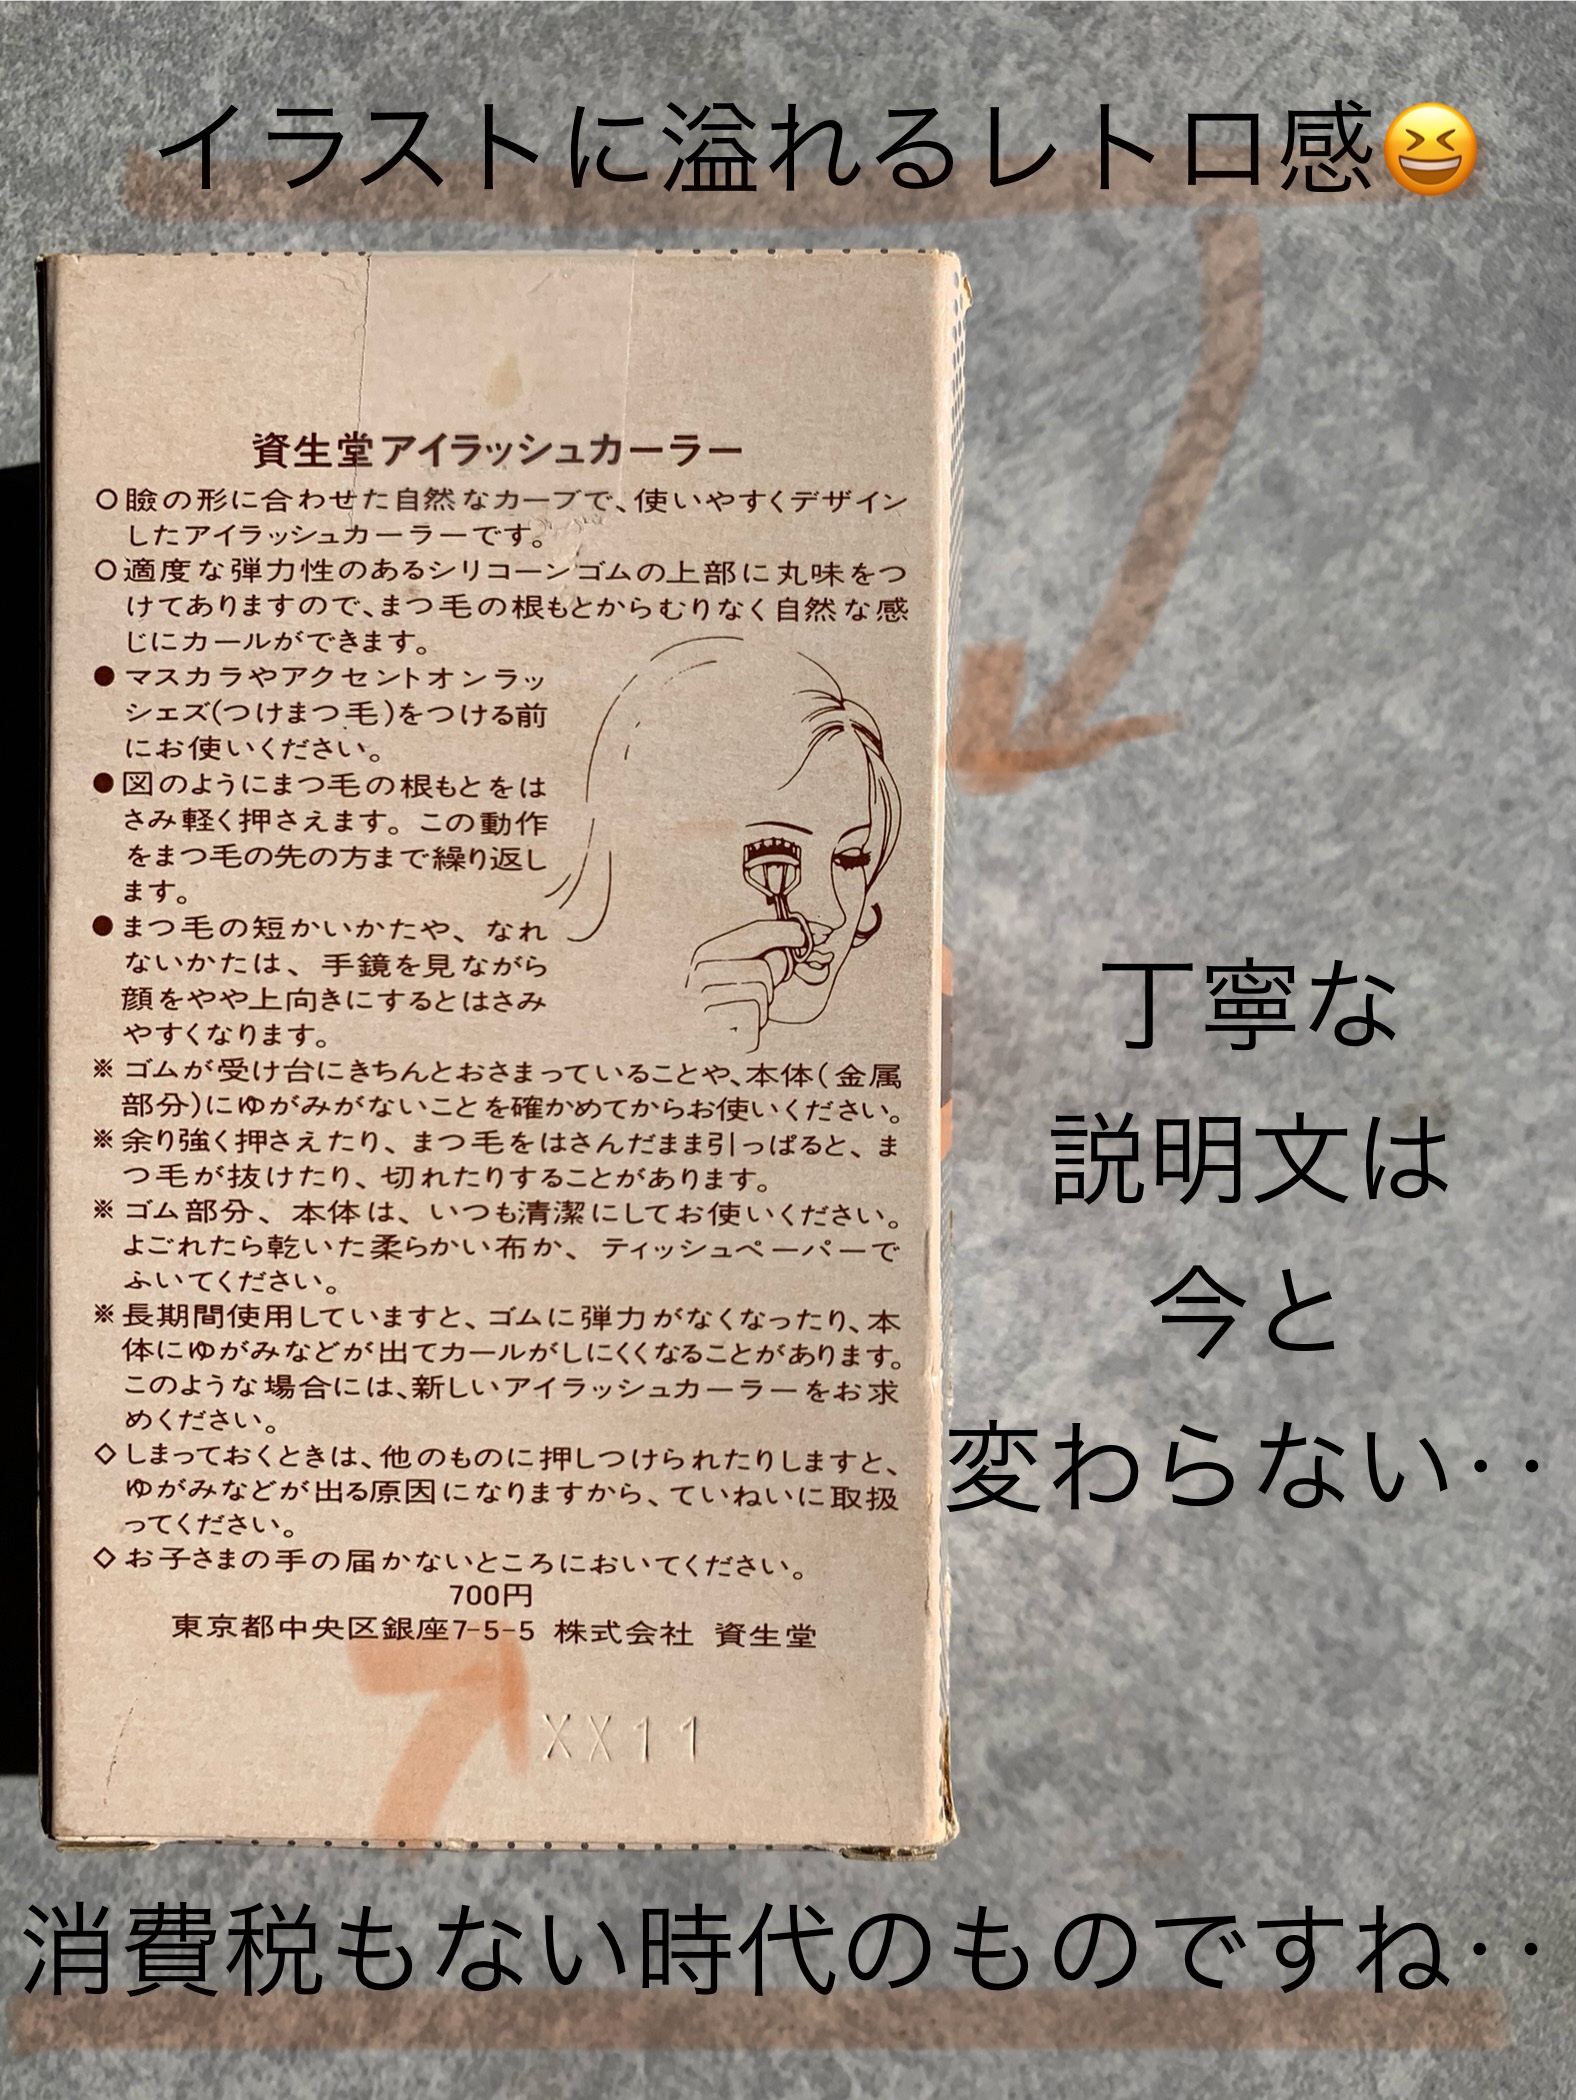 イラストに溢れるレトロ感😆
資生堂アイラッシュカーラー
○瞼の形に合わせた自然なカーブで、使いやすくデザイン
したアイラッシュカーラーです。
○適度な弾力性のあるシリコーンゴムの上部に丸味をつ
けてありますので、まつ毛の根もとからむりなく自然な感
じにカールができます。
●マスカラやアクセントオンラッ
シェズ(つけまつ毛)をつける前
にお使いください。
●図のようにまつ毛の根もとをは
さみ軽く押さえます。この動作
をまつ毛の先の方まで繰り返し
ます。
●まつ毛の短かいかたや、なれ
ないかたは、手鏡を見ながら
顔をやや上向きにするとはさみ
やすくなります。
※ゴムが受け台にきちんとおさまっていることや、本体(金属
部分)にゆがみがないことを確かめてからお使いください。
※余り強く押さえたり、まつ毛をはさんだまま引っぱると、ま
つ毛が抜けたり、切れたりすることがあります。
※ゴム部分、本体は、いつも清潔にしてお使いください。
よごれたら乾いた柔らかい布か、ティッシュペーパーで
ふいてください。
※長期間使用していますと、ゴムに弾力がなくなったり、本
体にゆがみなどが出てカールがしにくくなることがあります。
このような場合には、新しいアイラッシュカーラーをお求
めください。
◇しまっておくときは、他のものに押しつけられたりしますと、
ゆがみなどが出る原因になりますから、ていねいに取扱
ってください。
◇お子さまの手の届かないところにおいてください。
700円
東京都中央区銀座7-5-5 株式会社 資生堂
XX11
丁寧な
説明文は
今と
変わらない‥
消費税もない時代のものですね‥